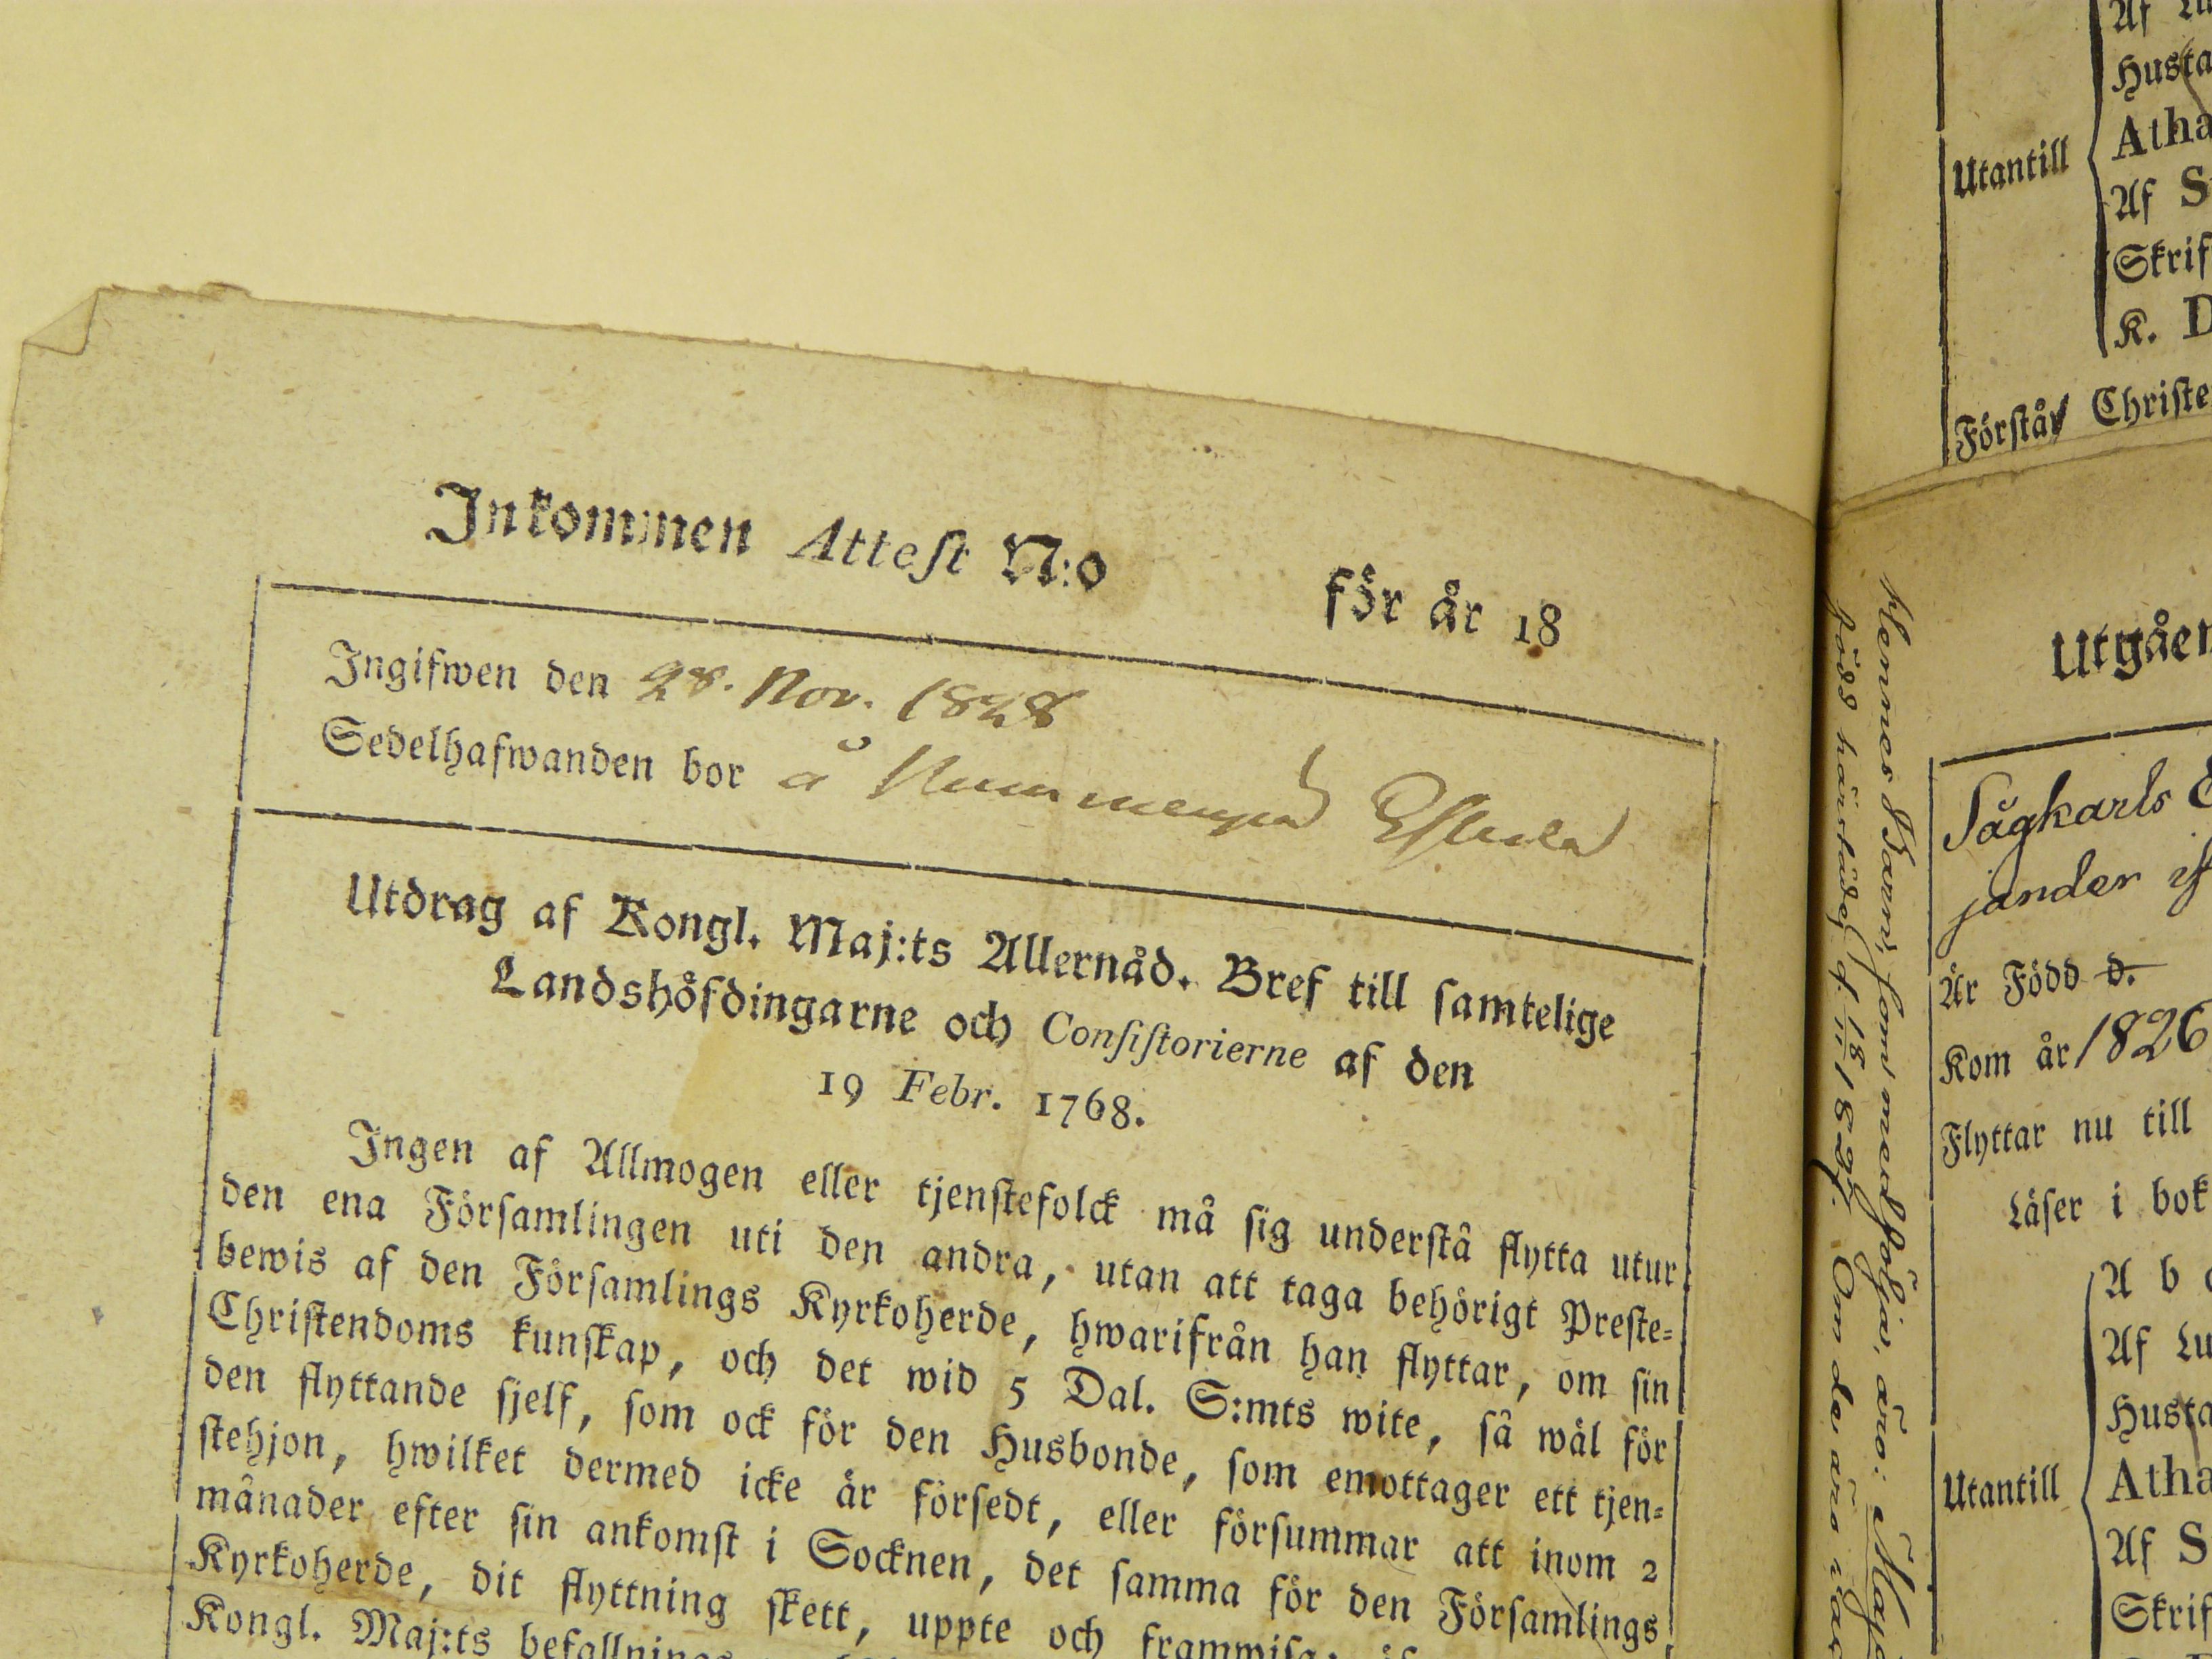 Inkommen Attest N:o för år 18
Ingifwen den 28. Nov. 1828
Sedelhafwanden bor å
Utdrag af Kongl. Maj:ts Allernåd. Bref till samtelige
Landshöfdingarne och Consistorierne af den
19 Febr. 1768.
Ingen af Allmogen eller tjenstefolck må sig understå flytta utur
den ena Församlingen uti den andra, utan att taga behörigt Preste=
bewis af den Församlings Kyrkoherde, hwarifrån han flyttar, om sin
Christendoms kunskap, och det wid 5 Dal. S:mts wite, så wäl för
den flyttande sjelf, som ock för den Husbonde, som emottager ett tjen=
stehjon, hwilket dermed icke är försedt, eller försummar att inom 2
månader efter sin ankomst i Socknen, det samma för den Församlings
Kyrkoherde, dit flyttning skett, uppte och
Kongl. Maj:ts
Hennes Barn, som medfölja, äro:
född härstädes d. 18/11 1827. Om de äro
Af Lu
Husta
Utantill
Atha
Af S
Skrif
K. D
Förstår Christe
Utgåen
Sågkarls E
jander
Är Född d.
Kom år 1826
Flyttar nu till
Läser i bok
A b
Af Lu
Husta
Utantill
Atha
Af S
Skrif